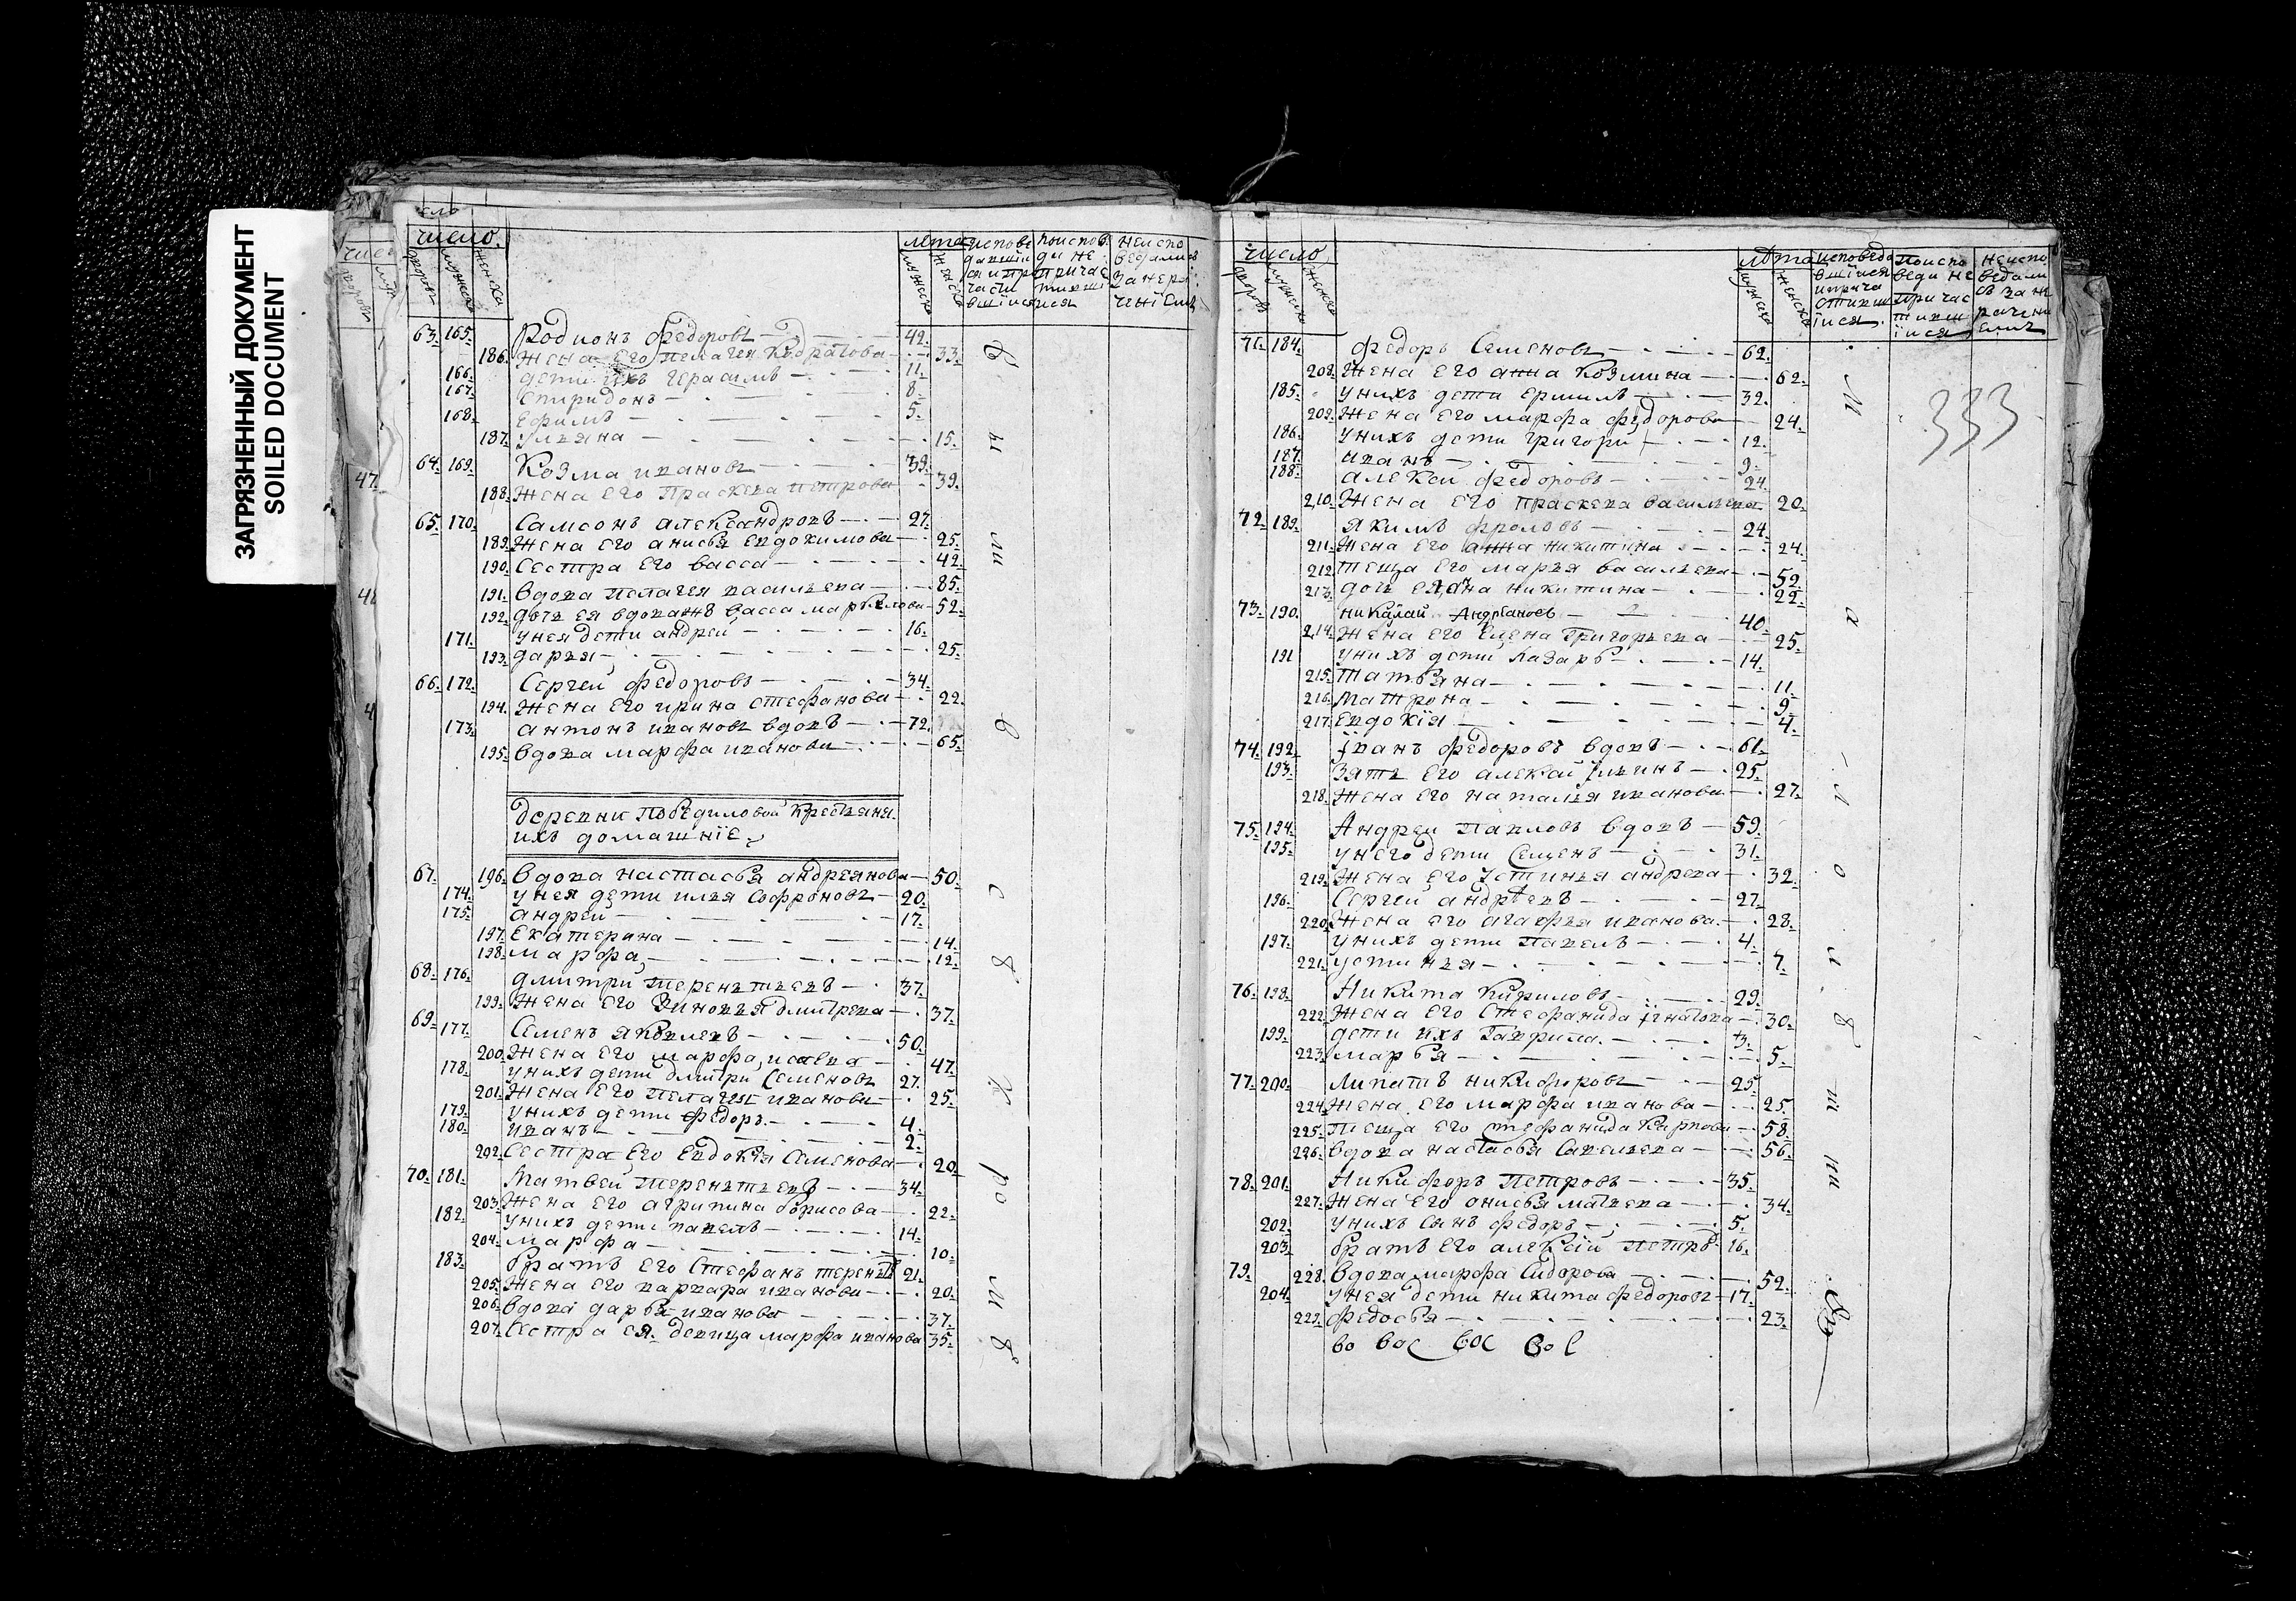 ЗАГРЯЗНЕННЫЙ ДОКУМЕНТ
SOILED DOCUMENT
число. лета
63. 165. Родионъ Федоровъ 42.
186. жена его пелагея 33.
166. дети ихъ герасимъ 11.
167. Спиридонъ 8.
168. Ефимъ 5.
187. Ульяна 15.
64. 169. Козма ивановъ 39.
188. жена его Праскева петрова 39.
65. 170. Самсонъ александровъ 27.
189. жена его анисья евдокимова 25.
190. Сестра его васса 42.
191. вдова пелагея васильева 85.
192. дочь ея вдова васса 52.
171. у нея дети андрей 16.
193. дарья 25.
66. 172. Сергей федоровъ 34.
194. жена его ирина стефанова 22.
173. антонъ ивановъ вдовъ 72.
195. вдова марфа иванова 65.
деревни Победиловой крестьяня
ихъ домашнїе
67. 196. вдова настасья андреянова 50.
174. у нея дети илья Софроновъ 20.
175. андрей 17.
197. Екатерина 14.
198. марфа 12.
68. 176. дмитри терентьевъ 37.
199. жена его Зиновья дмитрева 37.
69. 177. Семенъ яковлевъ 50.
200. жена его марфа исаева 47.
178. у нихъ дети дмитри Семеновъ 27.
201. жена его пелагея иванова 25.
179. у нихъ дети федоръ 4.
180. иванъ 2.
202. Сестра его евдокїя Семенова 20.
70. 181. матвей терентьевъ 34.
203. жена его агрипина борисова 22.
182. у нихъ дети павелъ 14.
204. марфа 10.
183. братъ его Стефанъ 21.
205. жена его варвара иванова 20.
206. вдова дарья иванова 37.
207. Сестра ея девица марфа иванова 35.
число лета
333
71. 184. федоръ Семеновъ 62.
208. жена его анна козмина 62.
185. у нихъ дети ермилъ 32.
209. жена его марфа федорова 24.
186. у нихъ дети григори 12.
187. иванъ 9.
188. алексей федоровъ 24.
210. жена его праскева васильева 20.
72. 189. якимъ фроловъ 24.
211. жена его анна никитина 24.
212. теща его марья васильева 52.
213. дочь ея анна никитина 22.
73. 190. николай Андреановъ 40.
214. жена его елена григорьева 25.
191 у нихъ дети лазаръ 14.
215. татьяна 11.
216. матрона 9.
217. евдокїя 4.
74. 192. їванъ федоровъ вдовъ 61.
193. зять его алексей ильинъ 25.
218. жена его наталья иванова 27.
75. 194. Андрей павловъ вдовъ 59.
195. у него дети Семенъ 31.
219. жена его устинья андрева 32.
196. Сергей андреевъ 27.
220. жена его агафья иванова 28.
197. у нихъ дети павелъ 4.
221. устинья 7.
76. 198. Никита Кирпловъ 29.
222. жена его Стефанида їгнатова 30.
199. дети ихъ гаврила 3.
223. марья 5.
77. 200. липатъ никифоровъ 25
224. жена его марфа иванова 25.
225. теща его стефанида Карпова 58.
226. вдова настасья Савельева 56.
78. 201. Никифоръ Петровъ 35.
227. жена его онисья матвева 34.
202. у нихъ сынъ федоръ 5.
203. братъ его алексїй петръ 16.
79. 228. вдова марфа Сидорова 52.
204. у нея дети никита федоровъ 17.
229. федосья 23.
во вос вос вос